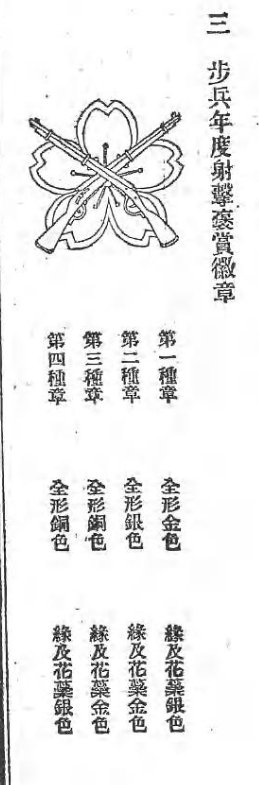 三 步兵年度射擊褒賞徽章
第一種章 全形金色 緣及花蘂銀色
第二種章 全形銀色 緣及花蘂金色
第三種章 全形銅色 緣及花蘂金色
第四種章 全形銅色 緣及花蘂銀色